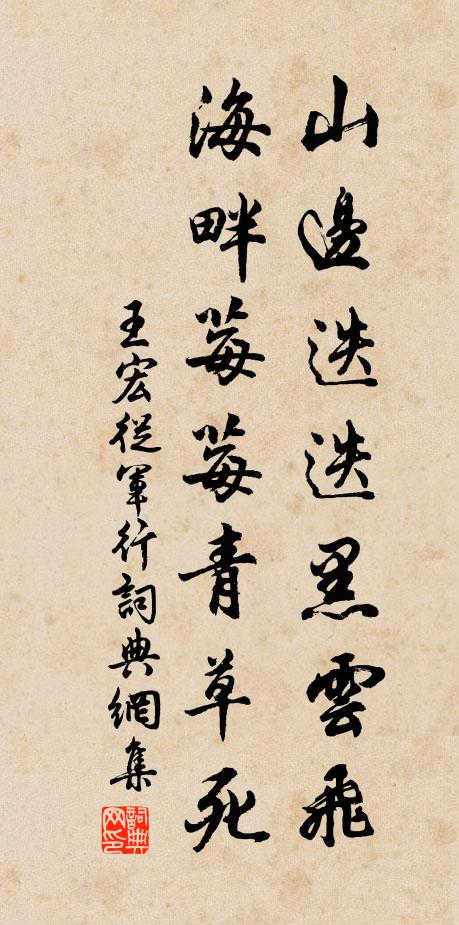 山邊迭迭黑雲飛
海畔莓莓青草死
王宏從軍行詞典網集
詞典网印